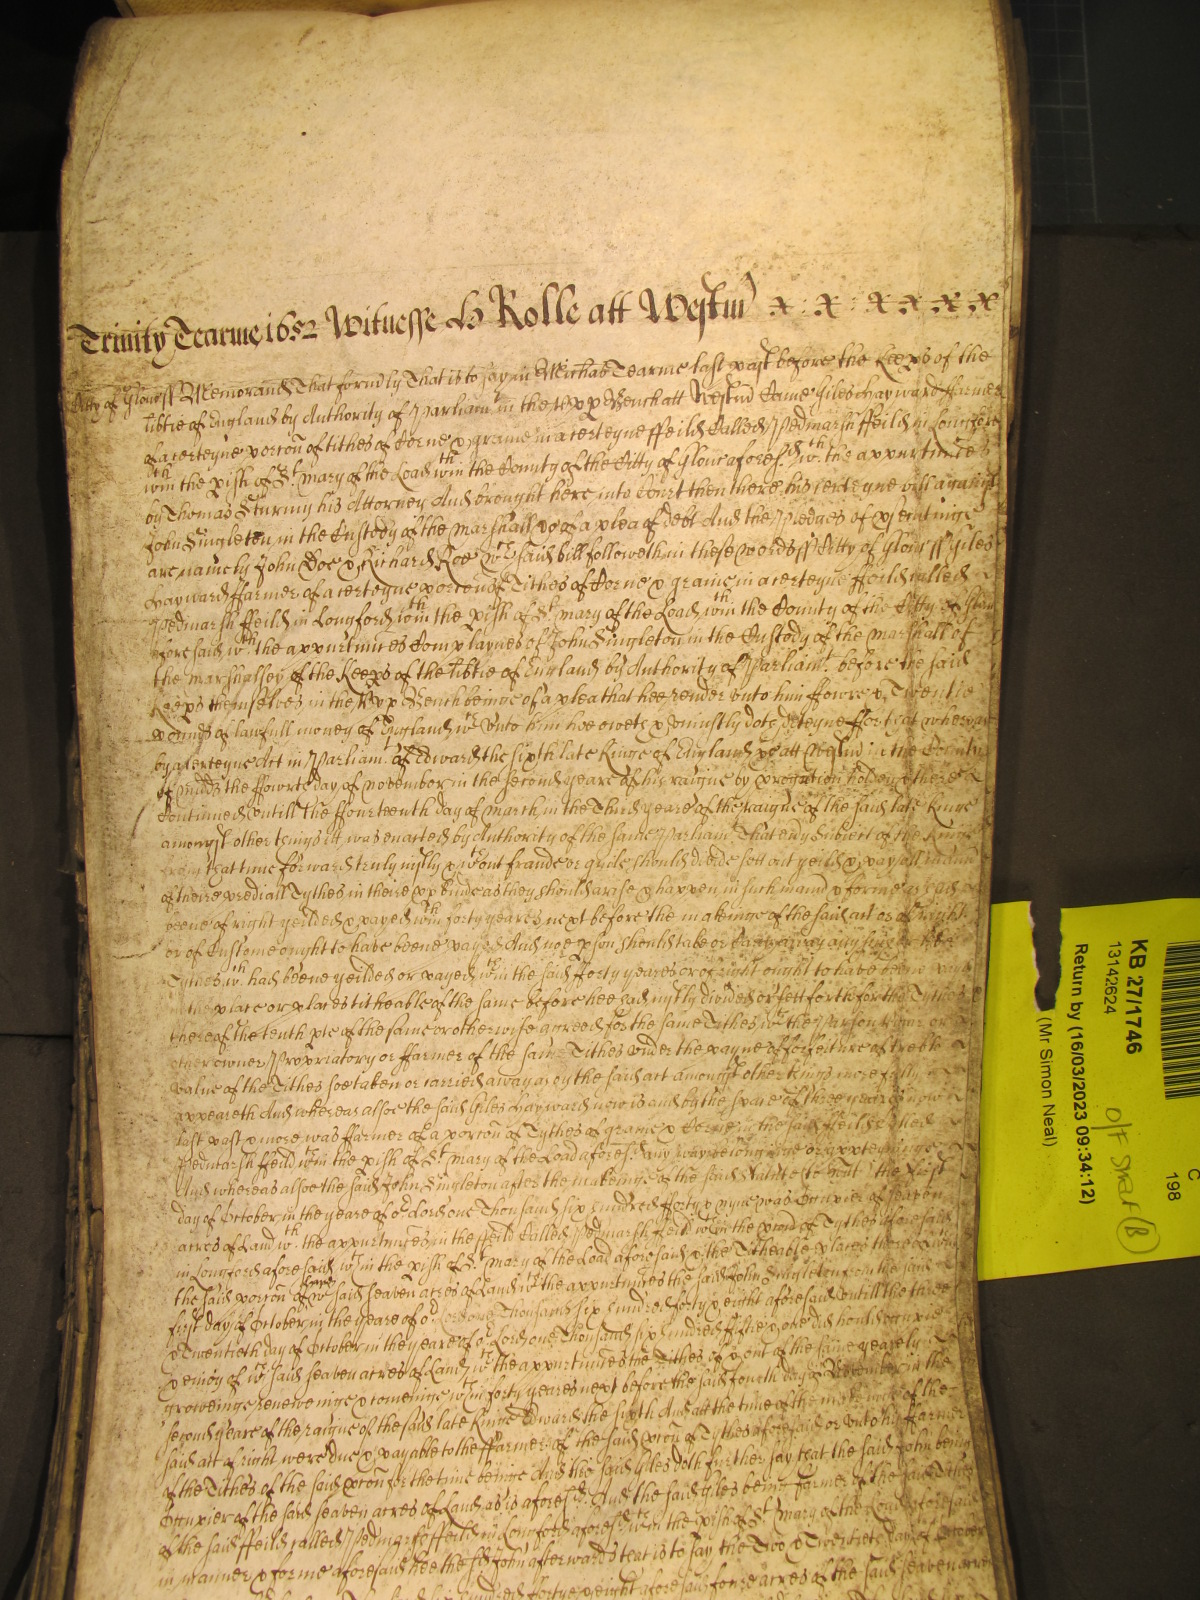 Trinity Tearme 1652 Witnesse Rolle att Westm
Citty of Gloucr ss Memorand That formerly That is to say in Michas Tearme last past before the Keeps of the
libtie of England by Authority of Parliamt in the upp Bench att Westm Came Giles Hayward ffarmer
of a certeyne porcon of tithes of Corne & graine in a certeyne ffeild Called Pedmarsh ffeild in Longford
wthin the pish of St Mary of the Load wthin the County of the Citty of Glouc aforesd wth the appurtinces
by Thomas Sturmy his Attorney And brought here into Court then there his certeyne bill against
John Singleton in the Custody of the Marshall &c of a plea of debt And the Pledges of psecutinge
are namely John Doe & Richard Roe wch said bill followeth in these words ss Citty of Glouc ss Giles
Hayward ffarmer of a certeyne porcon of Tithes of Corne & graine in a certeyne ffeild called
Pedmarsh ffeild in Longford wthin the pish of St Mary of the Load wthin the County of the Citty of Glouc
aforesaid wth the appurtinces Complaynes of John Singleton in the Custody of the Marshall of
the Marshalsey of the Keeps of the libtie of England by Authority of Parliamt before the said
Keeps themselves in the upp Bench beinge of a plea that hee render unto him ffowre & Twentie
pounds of lawfull money of England wch unto him hee owes & uniustly doth deteyne ffor that whereas
by a certeyne Act in Parliamt of Edward the sixth late Kinge of England &c att Westm in the County
of Midd the ffowrth day of November in the second yeare of his raigne by progation holden & there
Continued untill the ffourteenth day of March in the Third yeare of the raigne of the said late Kinge
amongst other things itt was enacted by Authority of the same Parliamt That evy Subiect of the Kings
from that time forward truly iustly & wthout fraude or guile should devide sett out yeild & pay all manner
of theire prediall Tythes in theire pp kinde as they should arise & happen in such manner & forme as had
beene of right yeilded & payed wthin forty yeares next before the makeinge of the said act or of right
or of Custome ought to have beene payed And noe pson should take or Carry away any such or like
Tythes wch had beene yeilded or payed wthin the said fforty yeares or of right ought to have beene payd
in the place or places titheable of the same before hee had iustly divided or sett forth for the Tythe
thereof the tenth pte of the same or otherwise agreed for the same Tythes wth the Parson Vicar or
other owner Propriatory or ffarmer of the same Tithes under the payne of forfeiture of treble
value of the Tithes soe taken or carried away as by the said act amongst other things more fully
appeareth And whereas alsoe the said Giles Hayward now is and by the space of three yeares now
last past & more was ffarmer of a porcon of Tythes of graine & Corne in the said ffeild called
Pedmarsh ffeild wthin the pish of St Mary of the Load aforesd any way belonginge or appteyninge
And whereas alsoe the said John Singleton after the makeinge of the said Statute (to witt) the first
day of October in the yeare of or Lord one Thousand six hundred forty & nyne was Occupier of seaven
acres of Land wth the appurtinces in the ffeild Called Pedmarsh ffeild wthin the porcon of Tythes aforesaid
in Longford aforesaid wthin the pish of St Mary of the Load aforesaid & the Titheable places thereof wthin
the said porcon of wch said seaven acres of Land wth the appurtinces the said John Singleton from the said
first day of October in the yeare of or Lord one Thousand six hundred forty & eight aforesaid untill the three
& Twentieth day of October in the yeare of or Lord one Thousand six hundred fiftie & one did hould occupie
& enioy of wch said seaven acres of Land wth the appurtinces the Tithes of & out of the same yearely
groweinge renewinge & comeinge wthin forty yeares next before the said fourth day of November in the
second yeare of the raigne of the said late Kinge Edward the sixth And att the time of the makeinge of the
said act of right were due & payable to the ffarmer of the said porcon of Tythes aforesaid or unto the ffarmer
of the Tithes of the said porcon for the time beinge And the said Giles doth further say that the said John being
Occupier of the said seaven acres of Land as is aforesd And the said Giles being ffarmer of the said Tithes
of the said ffeild called Pedmarsh ffeild in Longford aforesd wthin the pish of St Mary of the Load aforesaid
in manner & forme aforesaid hee the sd John afterwards that is to say the Two & Twentieth day of October
hundred fortye & eight aforesaid foure acres of the said seaven acres
KB 27/1746
13142624
Return by (16/03/2023 09:34:12)
(Mr Simon Neal)
O/F Shelf (B)
C
198